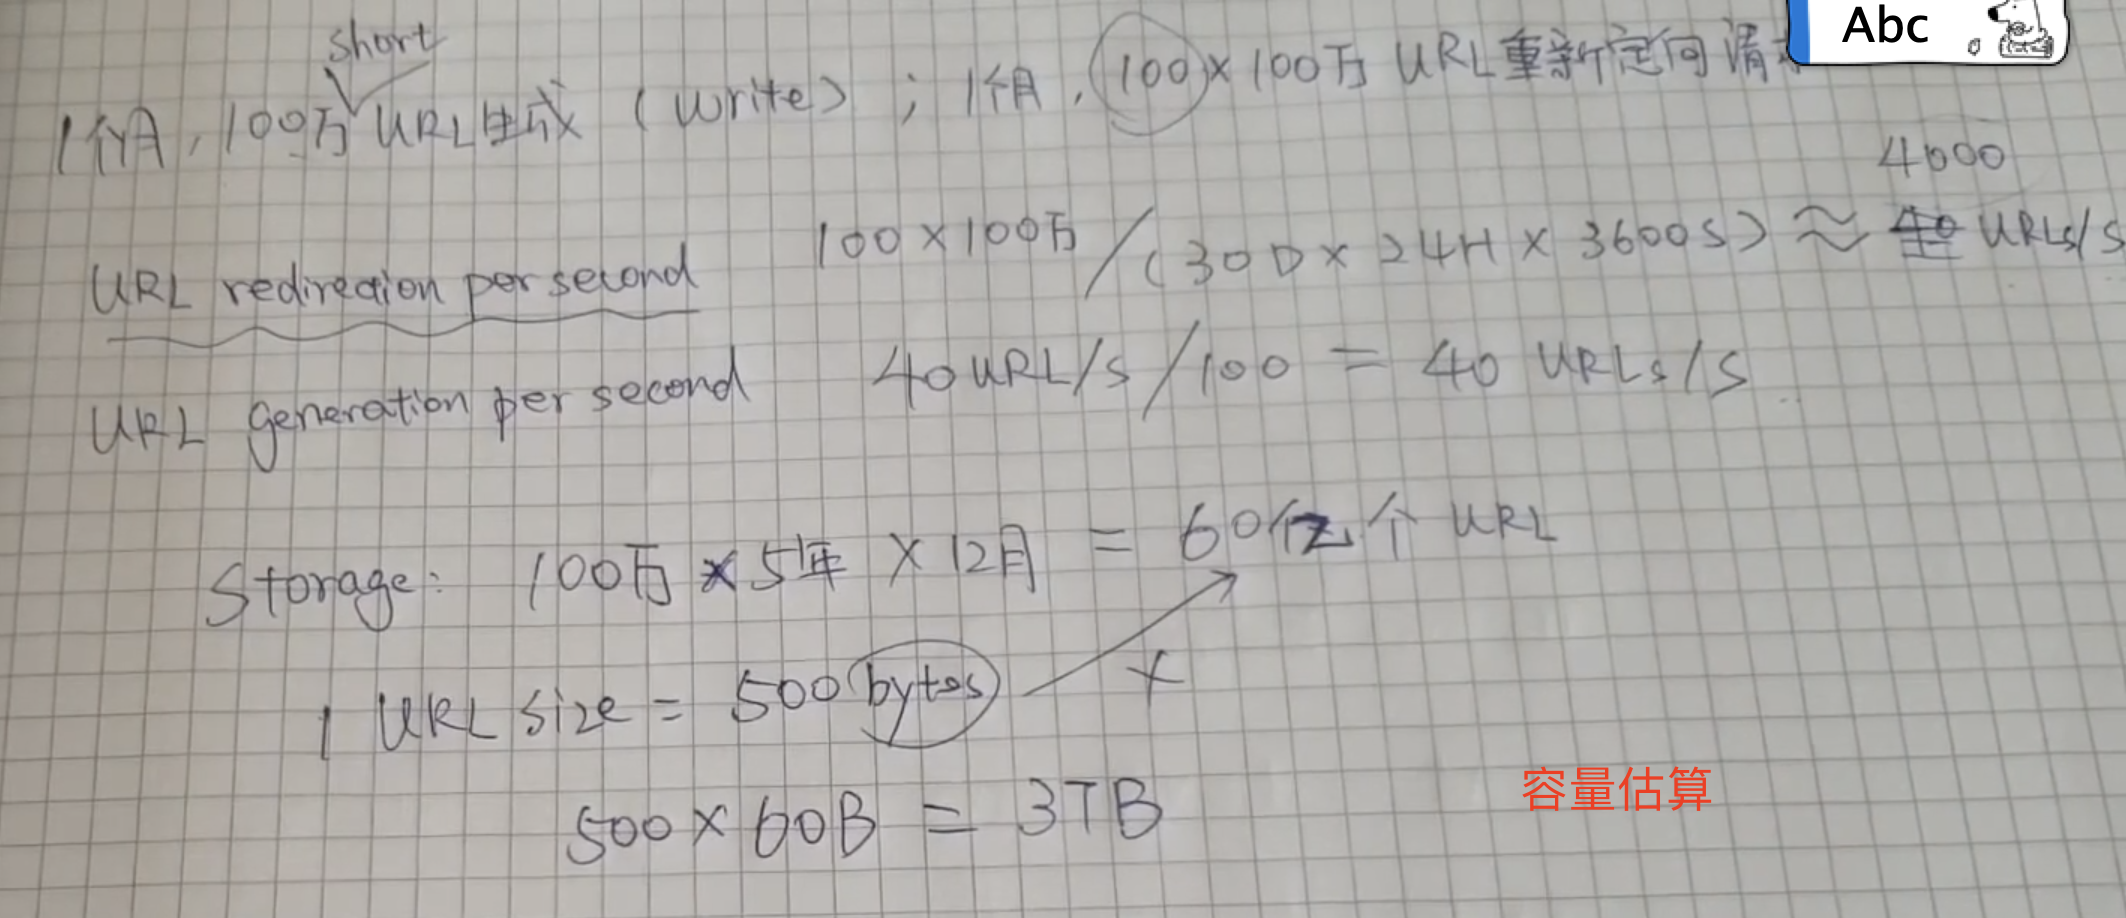 short
1个月,100万URL生成(write);1个月,100×100万 URL重新定向请
Abc
4000
URL redirection per second 100×100万/(30D×24H×3600S)≈ 40 URLs/S
URL generation per second 40URL/s/100 = 40 URLs/S
Storage: 100万×5年×12月 = 60亿个URL
1 URL size = 500bytes ×
500×60B = 3TB
容量估算